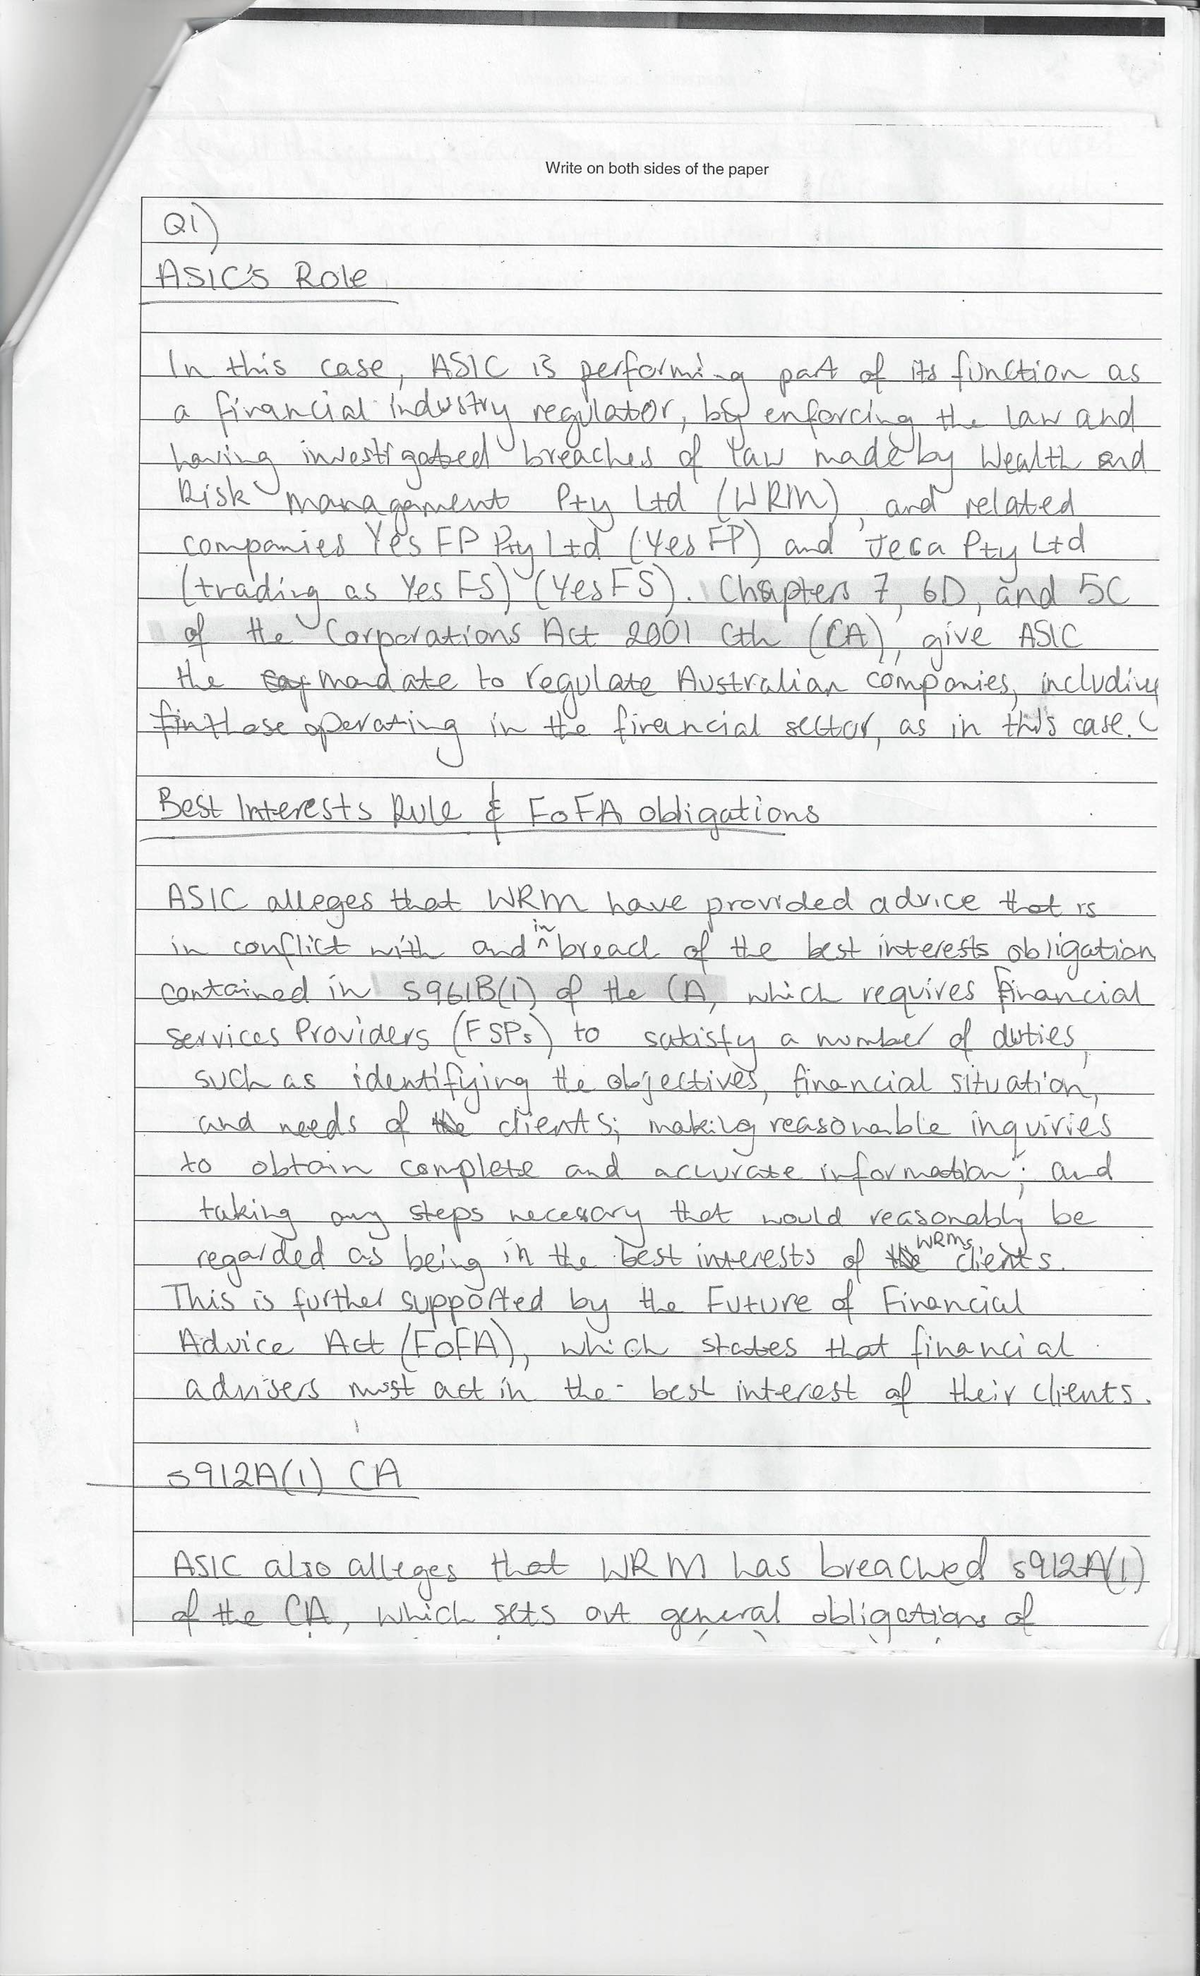 Write on both sides of the paper
Q1)
ASIC's Role
In this case, ASIC is performing part of its function as
a financial industry regulator, by enforcing the law and
having investigated breaches of law made by Wealth and
Risk Management Pty Ltd (WRM), and related
companies Yes FP Pty Ltd (Yes FP) and Jeca Pty Ltd
(trading as Yes FS) (Yes FS). Chapters 7, 6D, and 5C
of the Corporations Act 2001 Cth (CA), give ASIC
the mandate to regulate Australian companies, including
those operating in the financial sector, as in this case.
Best Interests Rule & FoFA obligations
ASIC alleges that WRM have provided advice that is
in conflict with and in breach of the best interests obligation
contained in s961B(1) of the CA, which requires Financial
Services Providers (FSPs) to satisfy a number of duties,
such as identifying the objectives, financial situation,
and needs of clients; making reasonable inquiries
to obtain complete and accurate information; and
taking any steps necessary that would reasonably be
regarded as being in the best interests of WRMs clients.
This is further supported by the Future of Financial
Advice Act (FoFA), which states that financial
advisers must act in the best interest of their clients.
s912A(1) CA
ASIC also alleges that WRM has breached s912A(1)
of the CA, which sets out general obligations of